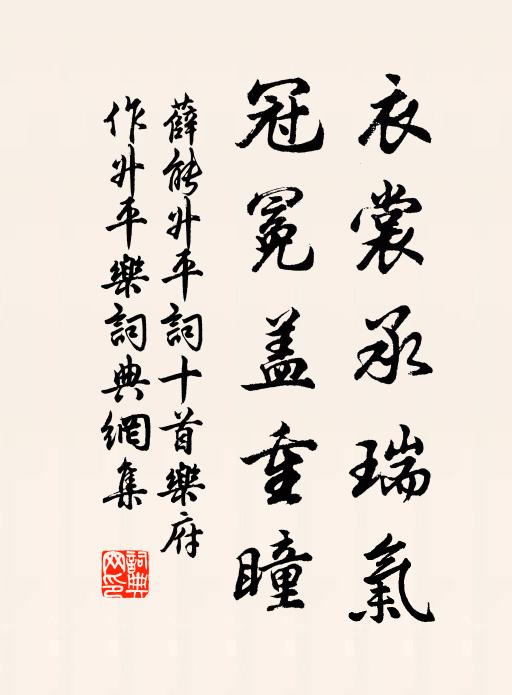 衣裳承瑞氣
冠冕盖重瞳
薛能升平詞十首樂府
作升平樂詞典網集
詞典網印